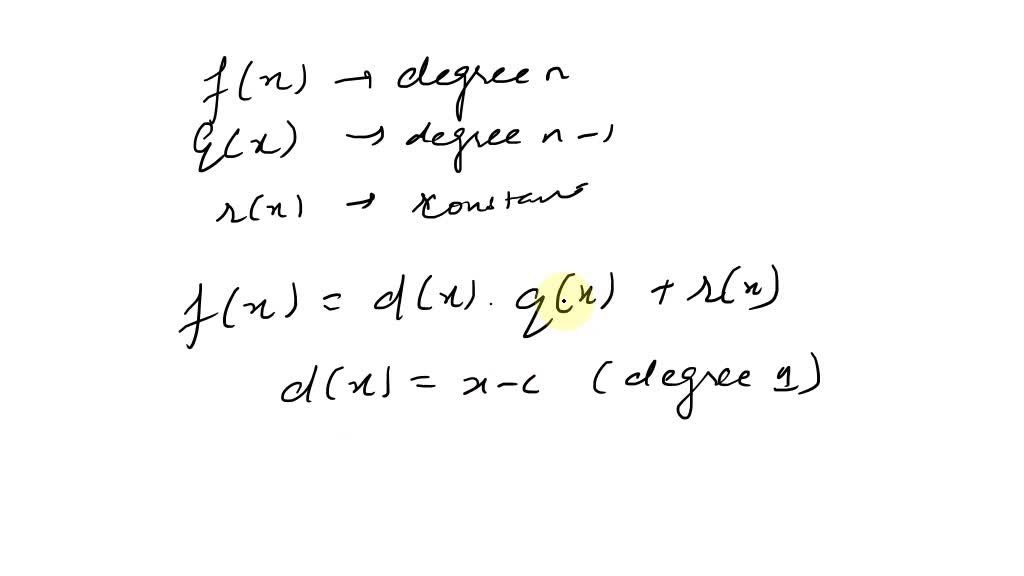 f(x) → degree n
q(x) → degree n-1
r(x) → constant
f(x) = d(x) . q(x) + r(x)
d(x) = x-c (degree 1)